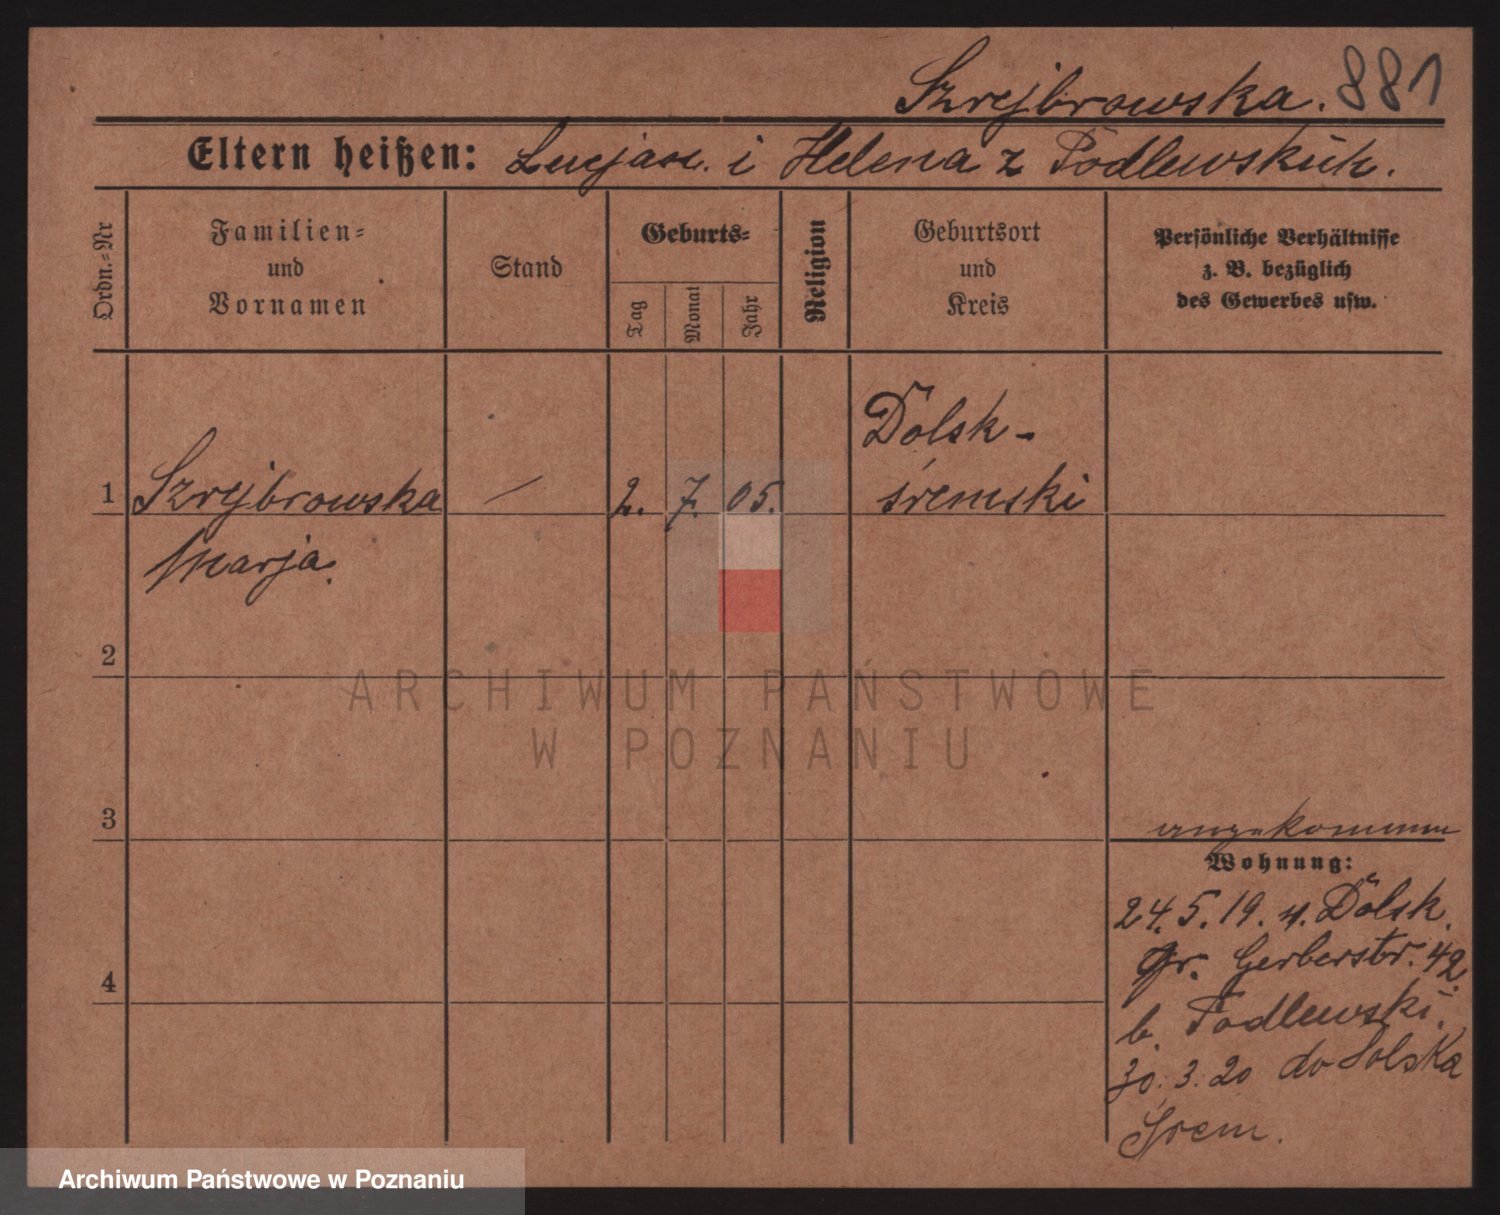 Szrejbrowska. 881
Eltern heißen: Lucjan. i Helena z Podlewskich.
Ordn.-Nr
Familien-
und
Vornamen
Stand
Geburts-
Tag
Monat
Jahr
Religion
Geburtsort
und
Kreis
Persönliche Verhältnisse
z. B. bezüglich
des Gewerbes usw.
1 Szrejbrowska — 2. 7. 05. Dolsk -
śremski
Marja.
2
3
4
angekommen
Wohnung:
24.5.19. v. Dolsk.
Gr. Gerberstr. 42.
b. Podlewski.
30.3.20 do Dolska
Śrem.
ARCHIWUM PAŃSTWOWE
W POZNANIU
Archiwum Państwowe w Poznaniu